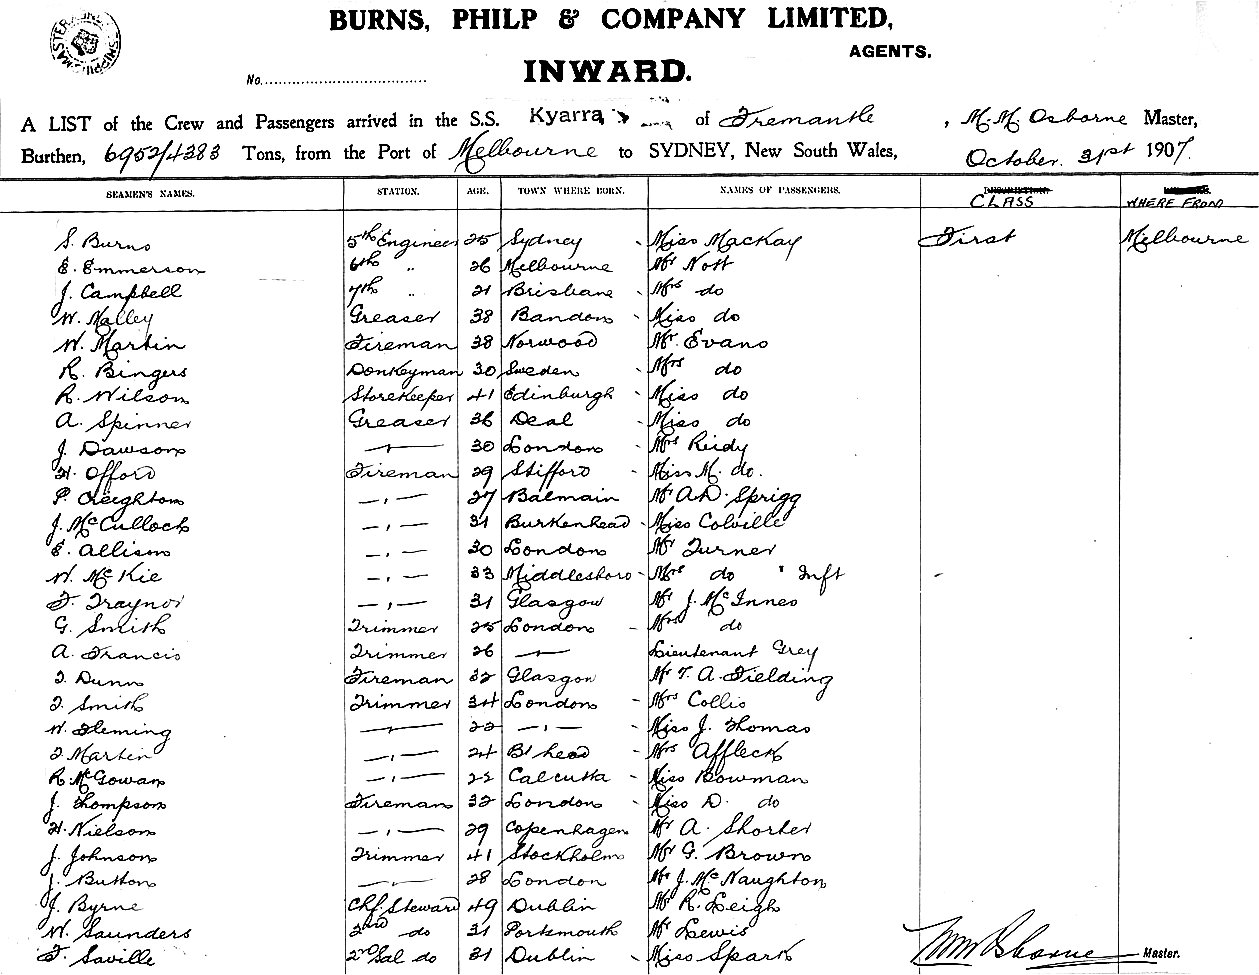 BURNS, PHILP & COMPANY LIMITED,
AGENTS.
INWARD.
No.
A LIST of the Crew and Passengers arrived in the S.S. Kyarra of Fremantle, M. M. Osborne Master,
Burthen, 6952/4383 Tons, from the Port of Melbourne to SYDNEY, New South Wales, October 31st 1907.
SEAMEN'S NAMES. STATION. AGE. TOWN WHERE BORN. NAMES OF PASSENGERS. CLASS WHERE FROM
S. Burns 5th Engineer 25 Sydney - Miss MacKay First Melbourne
E. Emmerson 6th " 26 Melbourne Mr Nott
J. Campbell 7th " 21 Brisbane - Mrs do
W. Malley Greaser 38 Bandon - Miss do
W. Martin Fireman 38 Norwood Mr Evans
R. Bingers Donkeyman 30 Sweden - Mrs do
R. Wilson StoreKeeper 41 Edinburgh - Miss do
A. Spinner Greaser 36 Deal - Miss do
J. Dawson — 30 London - Mrs Reidy
H. Offord Fireman 29 Stifford - Miss M. do.
P. Creighton —,— 27 Balmain Mr A.D. Sprigg
J. McCullock —,— 31 Burkenhead - Miss Colville
E. Allison —,— 30 London Mr Turner
W. McKie —,— 33 Middlesboro - Mrs do " Inft
F. Traynor —,— 31 Glasgow Mr J. McInnes
G. Smith Trimmer 25 London - Mrs do
A. Francis Trimmer 26 — Lieutenant Grey
J. Dunn Fireman 32 Glasgow Mr T. A. Fielding
J. Smith Trimmer 34 London - Mrs Collis
W. Fleming — 22 —,— - Miss J. Thomas
J. Martin —,— 24 B'head - Mrs Affleck
R. McGowan —,— 22 Calcutta - Miss Bowman
J. Thompson Fireman 32 London - Miss D. do
H. Nielson —,— 29 Copenhagen Mr A. Shorter
J. Johnson Trimmer 41 Stockholm Mr G. Brown
J. Button —,— 28 London Mr J. McNaughton
J. Byrne Chf. Steward 49 Dublin Mr R. Leigh
W. Saunders 2nd do 31 Portsmouth Mr Lewis
F. Saville 2nd Sal do 31 Dublin - Miss Spark
MM Osborne Master.